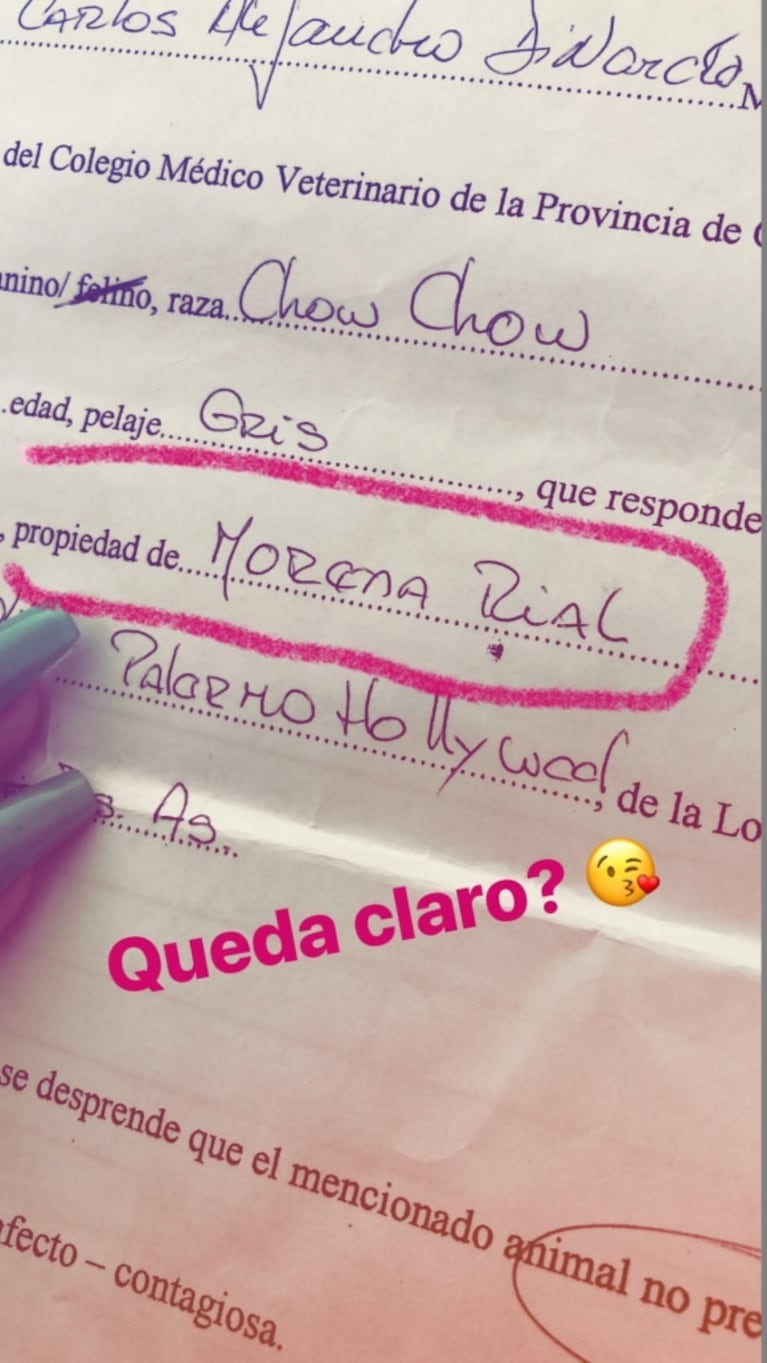 Carlos Alejandro DiNardo, M
del Colegio Médico Veterinario de la Provincia de
nino/ felino, raza Chow Chow
edad, pelaje Gris, que responde
, propiedad de MORENA RIAL
PALERMO Hollywood, de la Lo
s. As.
Queda claro? 😘
se desprende que el mencionado animal no pre
fecto – contagiosa.